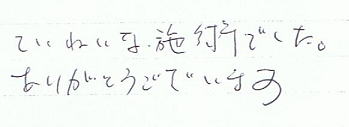 ていねいな施術でした。
ありがとうございます